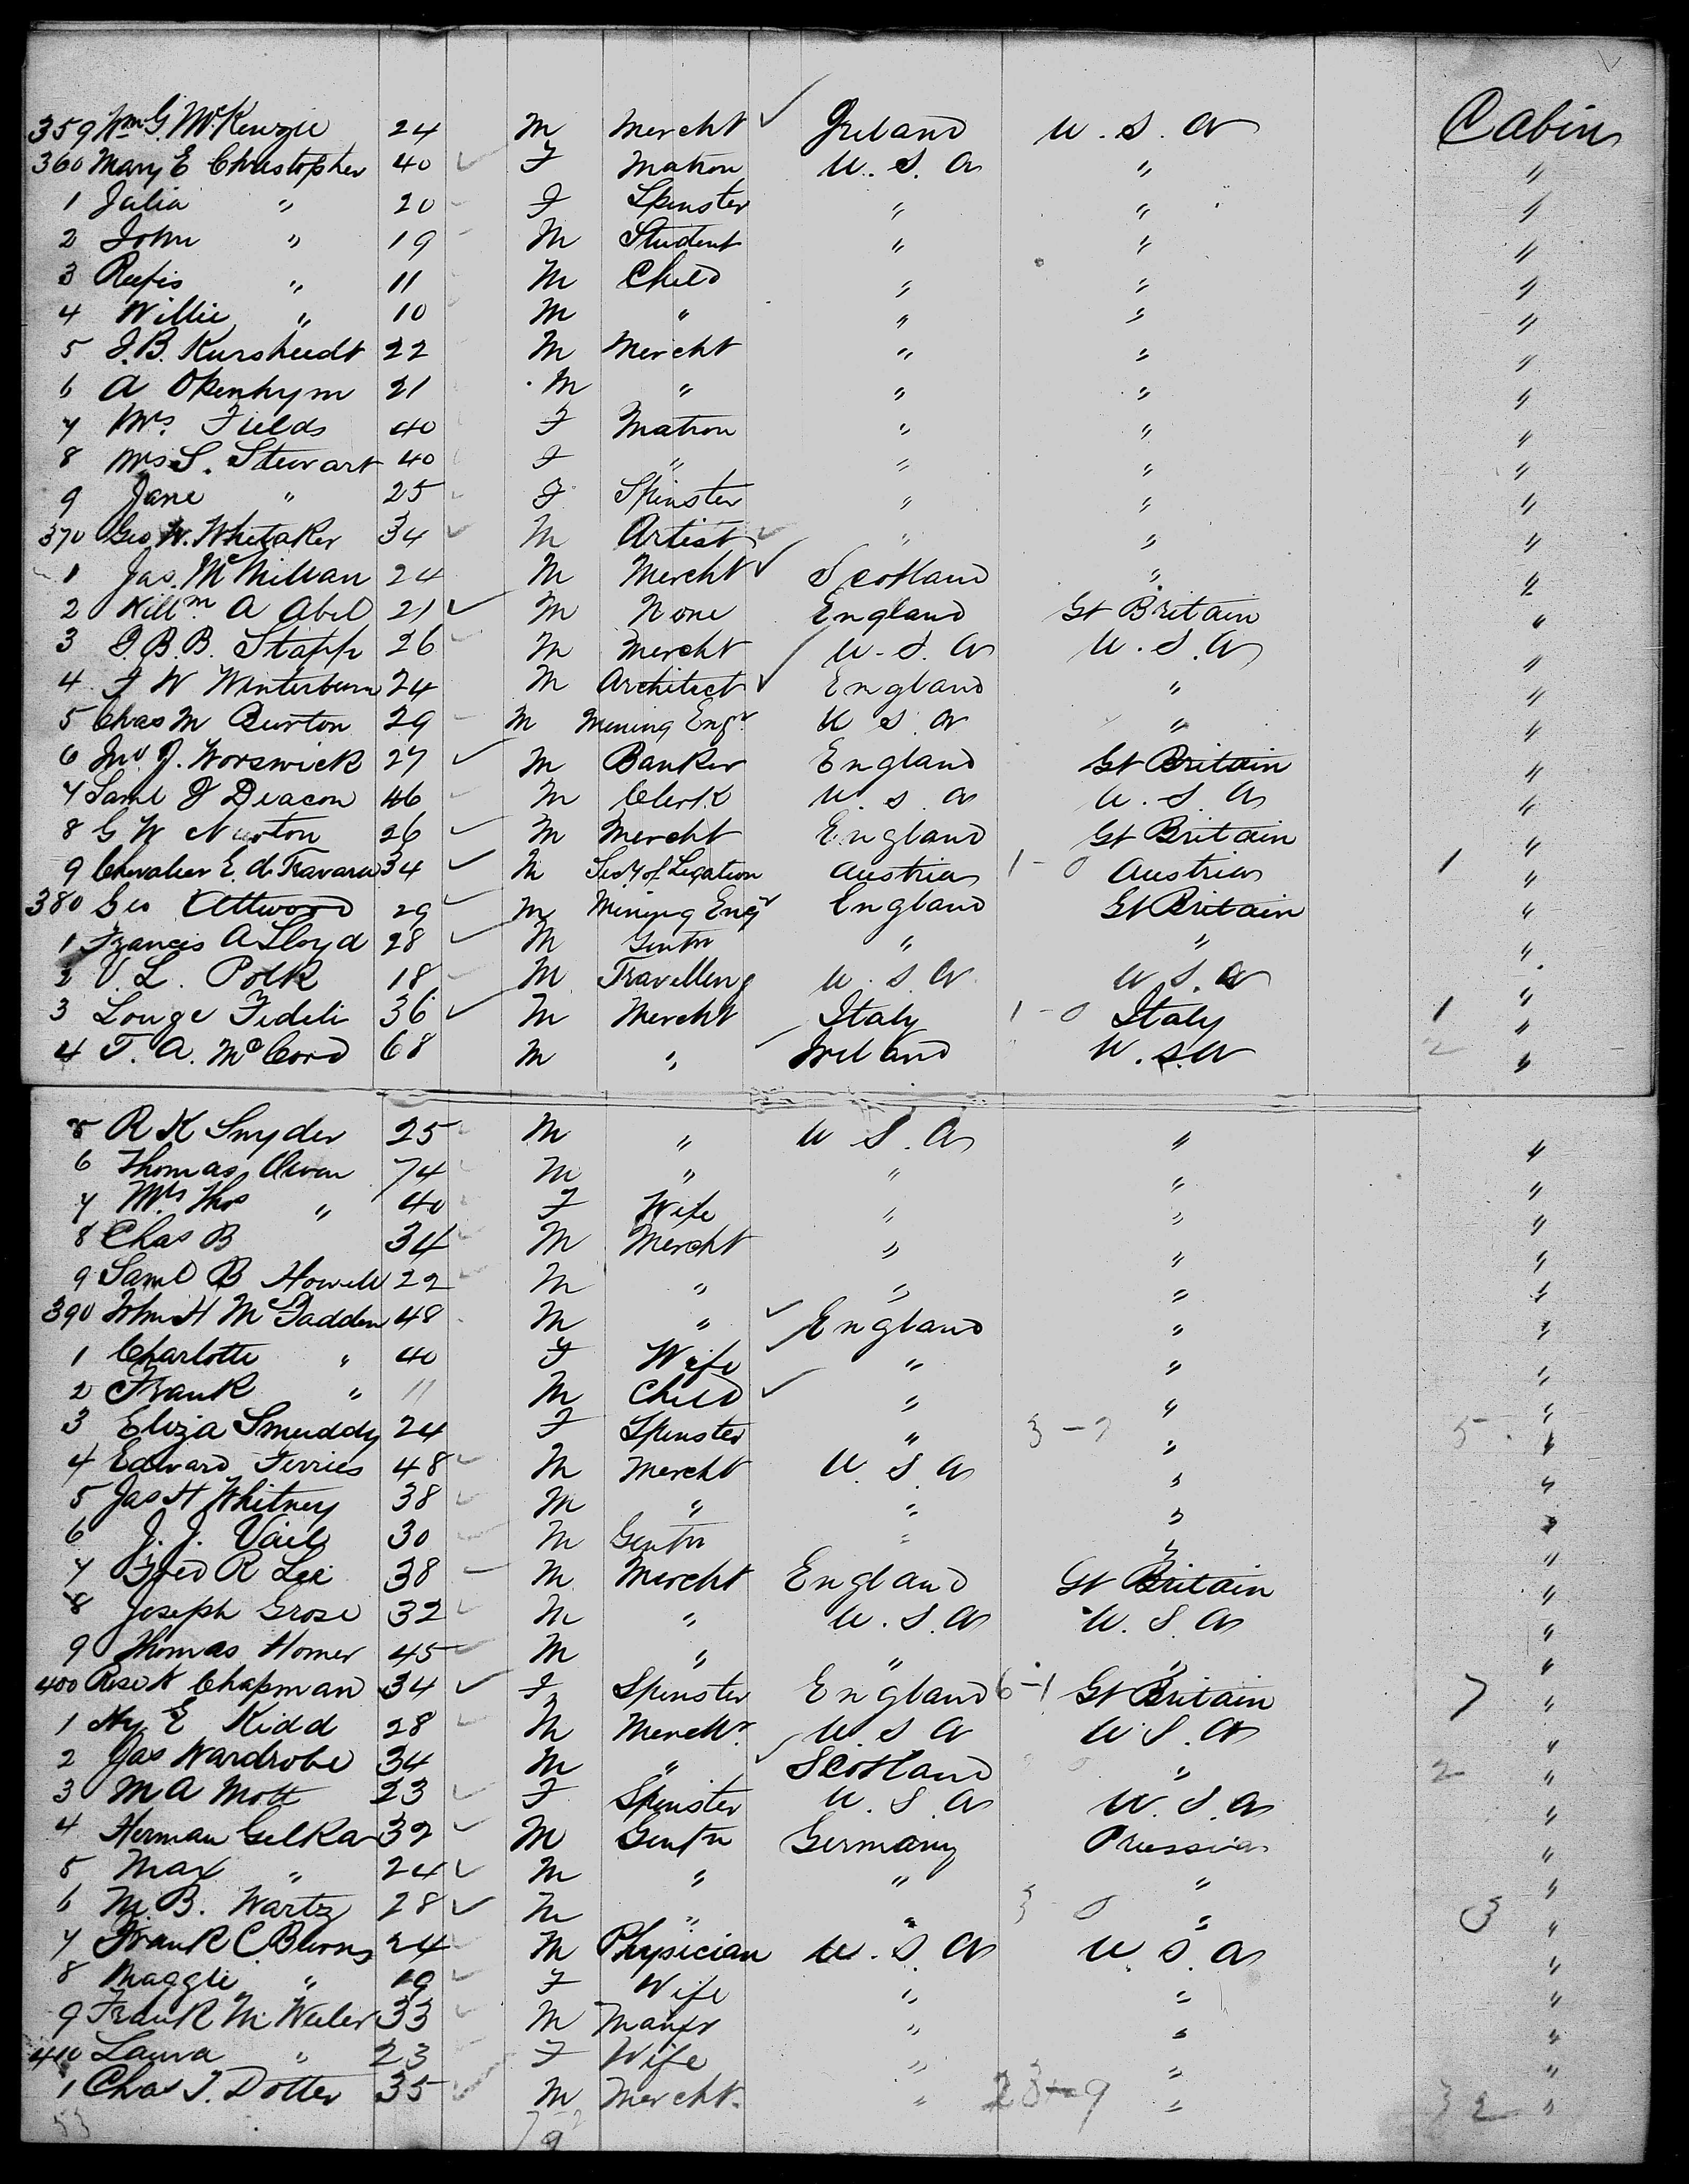 Cabin
359 Wm G. McKenzie 24 M Mercht Ireland U.S.A
360 Mary E Christopher 40 F Matron U.S.A "  "
1 Julia " 20 F Spinster " " "
2 John " 19 M Student " " "
3 Rufis " 11 M Child " " "
4 Willie " 10 M " " " "
5 J.B. Kursheedt 22 M Mercht " " "
6 A Openhym 21 M " " " "
7 Mrs. Fields 40 F Matron " " "
8 Mrs S. Stewart 40 F " " " "
9 Jane " 25 F Spinster " " "
370 Geo W. Whitaker 34 M Artist " " "
1 Jas. McMillan 24 M Mercht Scotland " "
2 Willm A Abel 21 M None England Gt Britain "
3 J.B.B. Stapp 26 M Mercht U.S.A U.S.A "
4 F W Winterburn 24 M Architect England " "
5 Chas M Burton 29 M Mining Engr. U S A " "
6 Jno J. Worswick 27 M Banker England Gt Britain "
7 Saml J Deacon 46 M Clerk U.S.A U.S.A "
8 G W Newton 26 M Mercht England Gt Britain "
9 Chevalier E. de Travara 34 M Secy of Legation Austria 1-0 Austria 1 "
380 Geo Attwood 29 M Mining Engr England Gt Britain "
1 Francis A Lloyd 28 M Gentn " " "
2 V.L. Polk 18 M Travelling U.S.A U.S.A "
3 Louge Fideli 36 M Mercht Italy 1-0 Italy 1 "
4 T.A. McCord 68 M " Ireland U.S.A 2 "
5 R K Snyder 25 M " U S.A " "
6 Thomas Owen 74 M " " " "
7 Mrs Thos " 40 F Wife " " "
8 Chas B 34 M Mercht " " "
9 Saml B Howell 22 M " " " "
390 John H McFadden 48 M " England " "
1 Charlotte " 40 F Wife " " "
2 Frank " 11 M Child " " "
3 Eliza Smuddy 24 F Spinster " 3-2 " 5 "
4 Edward Ferries 48 M Mercht U.S.A " "
5 Jas H Whitney 38 M " " " "
6 J.J. Vail 30 M Gentn " " "
7 Fred R Lee 38 M Mercht England Gt Britain "
8 Joseph Grose 32 M " U.S.A U.S.A "
9 Thomas Homer 45 M " " " "
400 Rose A Chapman 34 F Spinster England 6-1 Gt Britain 7 "
1 Hy E Kidd 28 M Mercht. U.S.A U.S.A "
2 Jas Wardrobe 34 M " Scotland " 2 "
3 M A Mott 23 F Spinster U.S.A U.S.A "
4 Herman Gelka 32 M Gentn Germany Prussia "
5 Max " 24 M " " " "
6 M.B. Wartz 28 M " " 3-0 " 3 "
7 Frank C Burns 24 M Physician U.S.A U.S.A "
8 Maggie " 19 F Wife " " "
9 Frank M Weiler 33 M Manfr " " "
410 Laura " 23 F Wife " " "
1 Chas T. Dotter 35 M Mercht. " 23-9 " 32 "
53 7-2
9